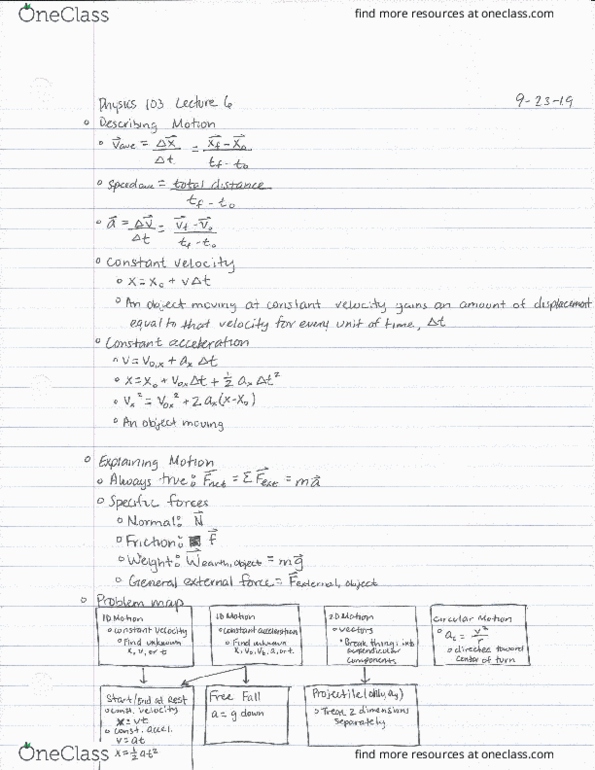 OneClass
find more resources at oneclass.com
Physics 103 Lecture 6
9-23-19
Describing Motion
v⃗ave = Δx⃗/Δt = (x⃗f - x⃗o)/(tf - to)
Speedave = total distance/(tf - to)
a⃗ = Δv⃗/Δt = (v⃗f - v⃗o)/(tf - to)
Constant velocity
x = xo + vΔt
An object moving at constant velocity gains an amount of displacement
equal to that velocity for every unit of time, Δt
Constant acceleration
v = vo,x + ax Δt
x = xo + vox Δt + 1/2 ax Δt²
vx² = vox² + 2ax(x-xo)
An object moving
Explaining Motion
Always true: F⃗net = ΣF⃗ext = ma⃗
Specific forces
Normal: N⃗
Friction: f⃗
Weight: W⃗earth,object = mg⃗
General external force = F⃗external, object
Problem map
1D Motion
constant velocity
Find unknown
x, v, or t
1D Motion
constant acceleration
Find unknown
x, vo, vf, a, or t.
2D Motion
vectors
Break things into
perpendicular
components
Circular Motion
ac = v²/r
directed toward
center of turn
Start/End at Rest
const. velocity
x = vt
const. accel.
v = at
x = 1/2 at²
Free Fall
a = g down
Projectile (only, ay)
Treat 2 dimensions
separately
OneClass
find more resources at oneclass.com